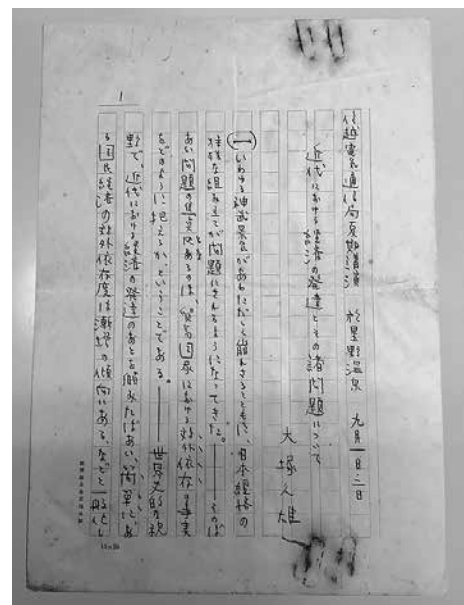 信越電気通信局夏期講演 於星野温泉 九月一日・二日
近代における経済の発達とその諸問題について
大塚久雄
(一)いわゆる神武景気があわただしく崩れさるとともに、日本経済の
特殊な組み立てが問題にされるようになってきた。――そのば
あい問題の焦点であるのは、貿易国家における対外依存の事実
をどのように捉えるか、ということである。――世界史的な視
野で、近代における経済の発達のあとを顧みたばあい、簡単にあ
る国民経済の対外依存度は漸増の傾向にある、などと一般化し
1